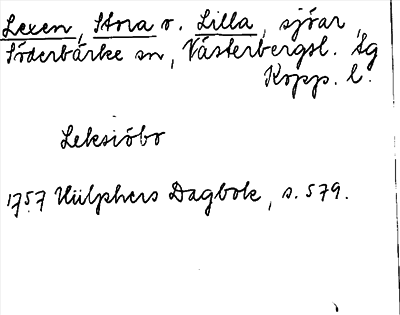 Lexen, Stora o. Lilla, sjöar,
Söderbärke sn, Västerbergsl. tg
Kopp. l.
Leksiöbo
1757 Hülphers Dagbok, s. 579.